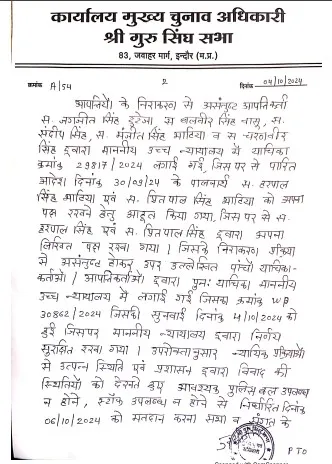 कार्यालय मुख्य चुनाव अधिकारी
श्री गुरु सिंघ सभा
83, जवाहर मार्ग, इन्दौर (म.प्र.)
क्रमांक A/54 2 दिनांक 04/10/2024
आपत्तियों के निराकरण से असंतुष्ट आपत्तिकर्ता
स. जगजीत सिंह स. बलवीर सिंह स.
संदीप सिंह, स. मंजीत सिंह भाटिया व स चरणवीर
सिंह द्वारा माननीय उच्च न्यायालय में याचिका
क्रमांक 29817/2024 लगाई गई, जिस पर से पारित
आदेश दिनांक 30/09/24 के पालनार्थ स. हरपाल
सिंह भाटिया एवं स. प्रितपाल सिंह भाटिया को अपना
पक्ष रखने हेतु आहूत किया गया, जिस पर से स.
हरपाल सिंह एवं स. प्रितपाल सिंह द्वारा अपना
लिखित पक्ष रखा गया। जिसके निराकरण प्रक्रिया
से असंतुष्ट होकर उपर उल्लेखित पांचों याचिका-
कर्ताओं / आपत्तिकर्ताओं द्वारा पुनः याचिका माननीय
उच्च न्यायालय में लगाई गई जिसका क्रमांक WP
30862/2024 जिसकी सुनवाई दिनांक 4/10/2024 को
हुई जिसपर माननीय न्यायालय द्वारा निर्णय
सुरक्षित रखा गया। उपरोक्तानुसार न्यायिक प्रक्रियाओं
से उत्पन्न स्थिति एवं प्रशासन द्वारा विवाद की
स्थितियों को देखते हुए आवश्यक पुलिस बल उपलब्ध
न होने, स्टॉफ उपलब्ध न होने से निर्धारित दिनांक
06/10/2024 को मतदान करना सभा व संगत के
PTO